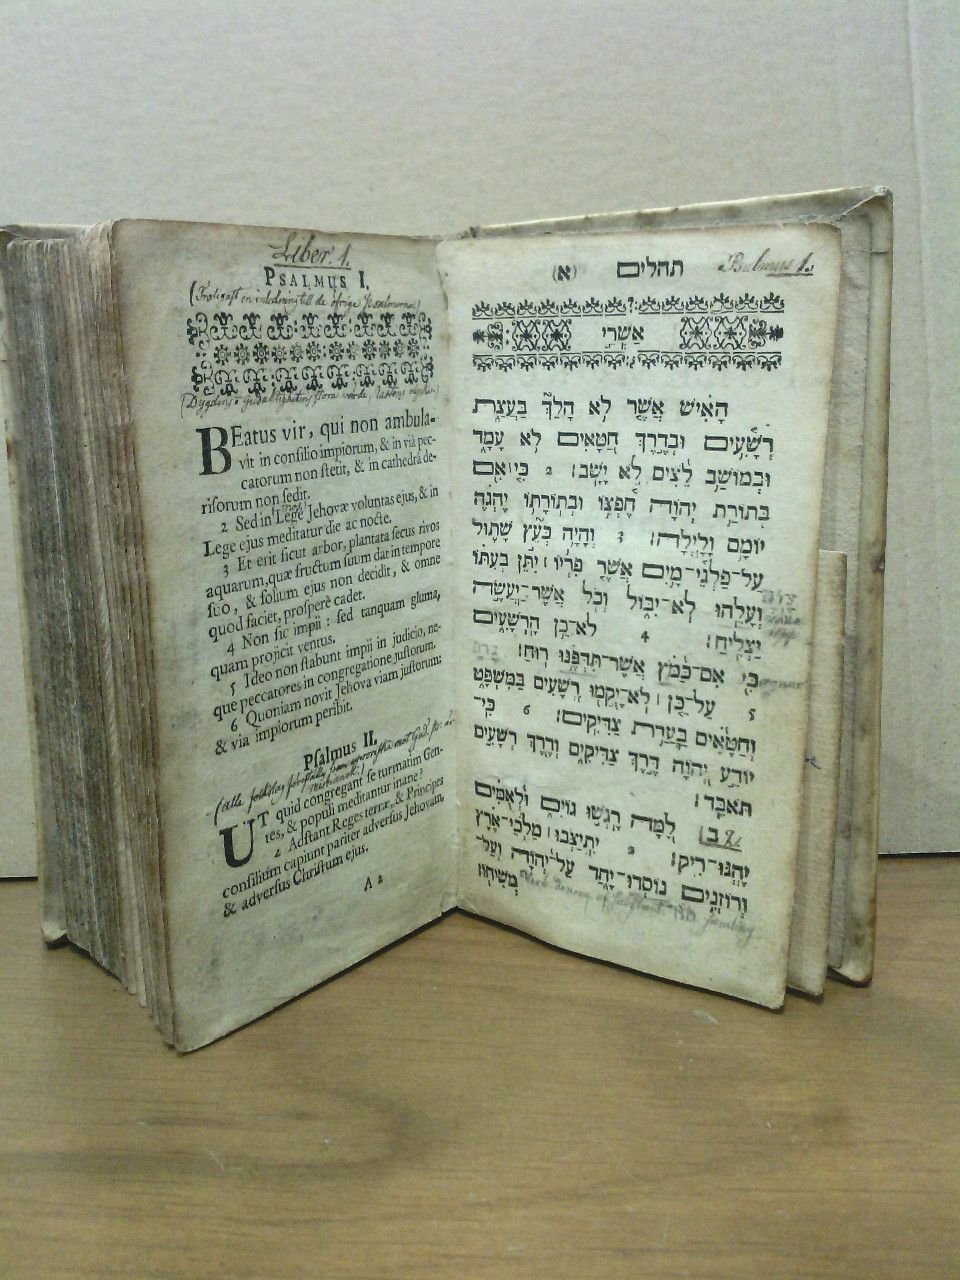 Liber. 1.
PSALMUS I.
(Troligast en inledning till de öfrige Psalmerna)
BEatus vir, qui non ambula-
vit in consilio impiorum, & in viâ pec-
catorum non stetit, & in cathedrâ de-
risorum non sedit.
2 Sed in Lege Jehovæ voluntas ejus, & in
Lege ejus meditatur die ac nocte.
3 Et erit sicut arbor, plantata secus rivos
aquarum, quæ fructum suum dat in tempore
suo, & folium ejus non decidit, & omne
quod faciet, prosperè cadet.
4 Non sic impii: sed tanquam gluma,
quam projicit ventus.
5 Ideo non stabunt impii in judicio, ne-
que peccatores in congregatione justorum.
6 Quoniam novit Jehova viam justorum:
& via impiorum peribit.
Psalmus II.
UT quid congregant se turmatim Gen-
tes, & populi meditantur inane?
2 Adstant Reges terræ, & Principes
consilium capiunt pariter adversus Jehovam,
& adversus Christum ejus.
A 2
תהלים (א)
Psalmus 1.
אַשְׁרֵי
הָאִישׁ אֲשֶׁר לֹא הָלַךְ בַּעֲצַת
רְשָׁעִים וּבְדֶרֶךְ חַטָּאִים לֹא עָמָד
וּבְמוֹשַׁב לֵצִים לֹא יָשָׁב׃ 2 כִּי אִם
בְּתוֹרַת יְהוָה חֶפְצוֹ וּבְתוֹרָתוֹ יֶהְגֶּה
יוֹמָם וָלָיְלָה׃ 3 וְהָיָה כְּעֵץ שָׁתוּל
עַל־פַּלְגֵי־מָיִם אֲשֶׁר פִּרְיוֹ ׀ יִתֵּן בְּעִתּוֹ
וְעָלֵהוּ לֹא־יִבּוֹל וְכֹל אֲשֶׁר־יַעֲשֶׂה
יַצְלִיחַ׃ 4 לֹא־כֵן הָרְשָׁעִים
כִּי אִם־כַּמֹּץ אֲשֶׁר־תִּדְּפֶנּוּ רוּחַ׃
5 עַל־כֵּן ׀ לֹא־יָקֻמוּ רְשָׁעִים בַּמִּשְׁפָּט
וְחַטָּאִים בַּעֲדַת צַדִּיקִים׃ 6 כִּי־
יוֹדֵעַ יְהוָה דֶּרֶךְ צַדִּיקִים וְדֶרֶךְ רְשָׁעִים
תֹּאבֵד׃
ב לָמָּה רָגְשׁוּ גוֹיִם וּלְאֻמִּים
יֶהְגּוּ־רִיק׃ 2 יִתְיַצְּבוּ ׀ מַלְכֵי־אֶרֶץ
וְרוֹזְנִים נוֹסְדוּ־יָחַד עַל־יְהוָה וְעַל־
מְשִׁיחוֹ